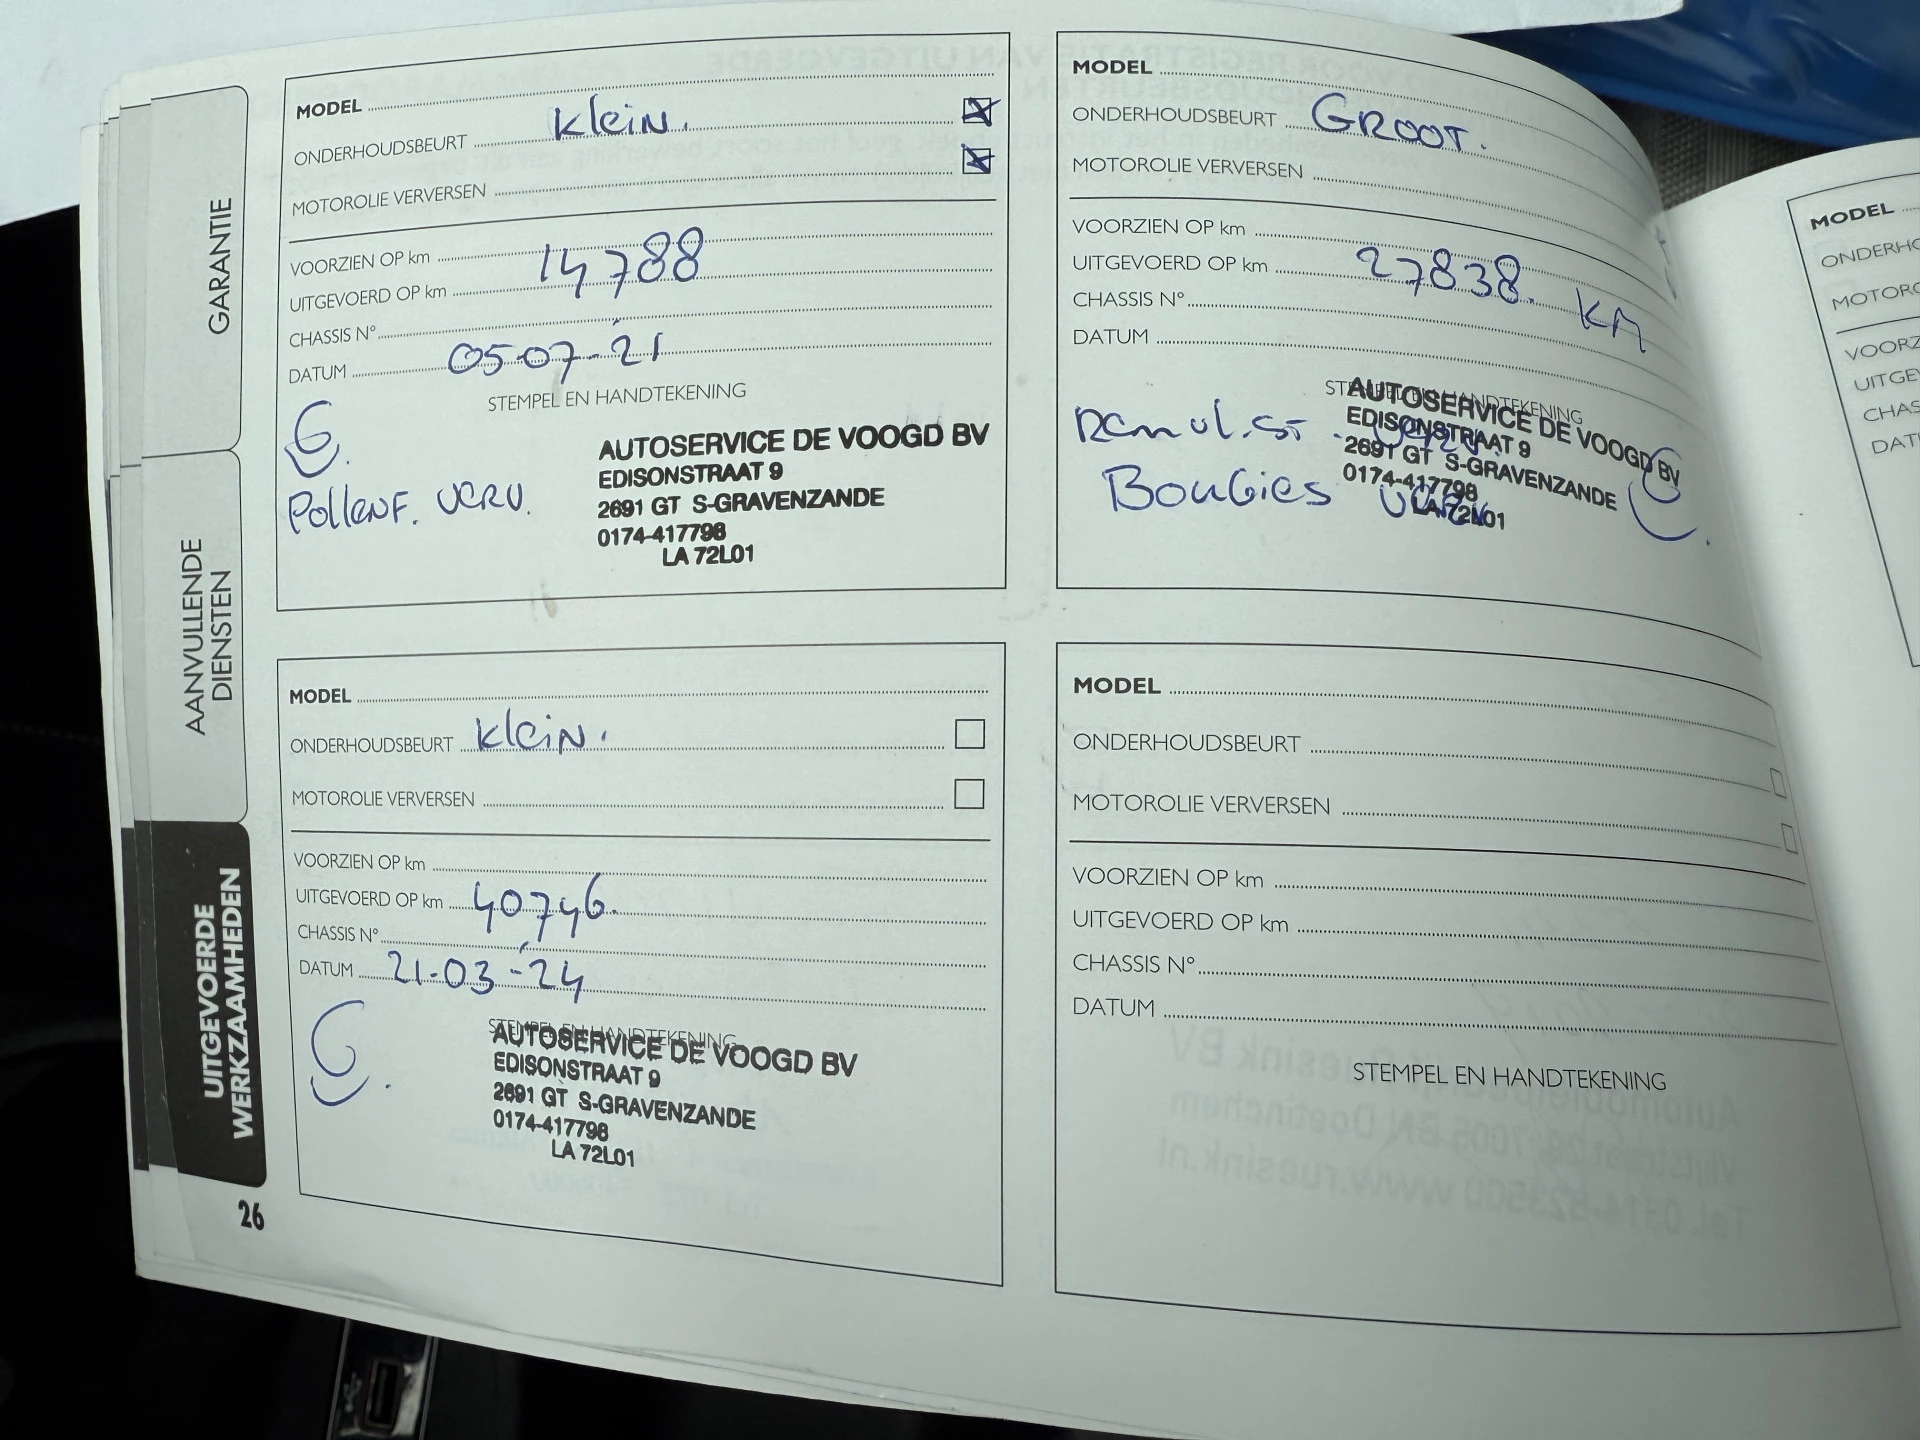 GARANTIE
AANVULLENDE
DIENSTEN
UITGEVOERDE
WERKZAAMHEDEN
26
MODEL
ONDERHOUDSBEURT Klein.
MOTOROLIE VERVERSEN
VOORZIEN OP km
UITGEVOERD OP km 14788
CHASSIS N°
DATUM 05-07-21
STEMPEL EN HANDTEKENING
Pollenf. verv.
AUTOSERVICE DE VOOGD BV
EDISONSTRAAT 9
2691 GT S-GRAVENZANDE
0174-417798
LA 72L01
MODEL
ONDERHOUDSBEURT GROOT.
MOTOROLIE VERVERSEN
VOORZIEN OP km
UITGEVOERD OP km 27838. KM
CHASSIS N°
DATUM
STEMPEL EN HANDTEKENING
Remvl.st. verv
Bougies verv
AUTOSERVICE DE VOOGD BV
EDISONSTRAAT 9
2691 GT S-GRAVENZANDE
0174-417798
LA 72L01
MODEL
ONDERHOUDSBEURT Klein.
MOTOROLIE VERVERSEN
VOORZIEN OP km
UITGEVOERD OP km 40746.
CHASSIS N°
DATUM 21-03-'24
STEMPEL EN HANDTEKENING
AUTOSERVICE DE VOOGD BV
EDISONSTRAAT 9
2691 GT S-GRAVENZANDE
0174-417798
LA 72L01
MODEL
ONDERHOUDSBEURT
MOTOROLIE VERVERSEN
VOORZIEN OP km
UITGEVOERD OP km
CHASSIS N°
DATUM
STEMPEL EN HANDTEKENING
MODEL
ONDERHO
MOTORO
VOORZ
UITGE
CHAS
DAT